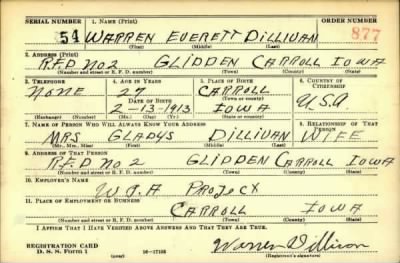 SERIAL NUMBER 1. NAME (Print) ORDER NUMBER
54 WARREN EVERETT DILLIVAN 877
(First) (Middle) (Last)
2. ADDRESS (Print)
R.F.D NO 2 GLIDDEN CARROLL IOWA
(Number and street or R. F. D. number) (Town) (County) (State)
3. TELEPHONE 4. AGE IN YEARS 5. PLACE OF BIRTH 6. COUNTRY OF CITIZENSHIP
NONE 27 CARROLL
DATE OF BIRTH (Town or county) USA
2-13-1913 IOWA
(Exchange) (Number) (Mo.) (Day) (Yr.) (State or country)
7. NAME OF PERSON WHO WILL ALWAYS KNOW YOUR ADDRESS 8. RELATIONSHIP OF THAT PERSON
MRS GLADYS DILLIVAN WIFE
(Mr., Mrs., Miss) (First) (Middle) (Last)
9. ADDRESS OF THAT PERSON
R.F.D NO 2 GLIDDEN CARROLL IOWA
(Number and street or R. F. D. number) (Town) (County) (State)
10. EMPLOYER'S NAME
W.P.A PROJECT
11. PLACE OF EMPLOYMENT OR BUSINESS
CARROLL IOWA
(Number and street or R. F. D. number) (Town) (County) (State)
I AFFIRM THAT I HAVE VERIFIED ABOVE ANSWERS AND THAT THEY ARE TRUE.
REGISTRATION CARD
D. S. S. FORM 1 (over) 16-17105 Warren Dillivan
(Registrant's signature)